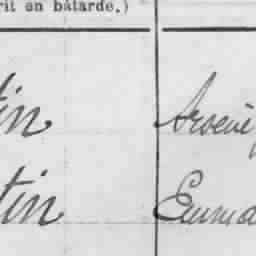 rit en bâtarde.)
tin Arsène
tin Emma